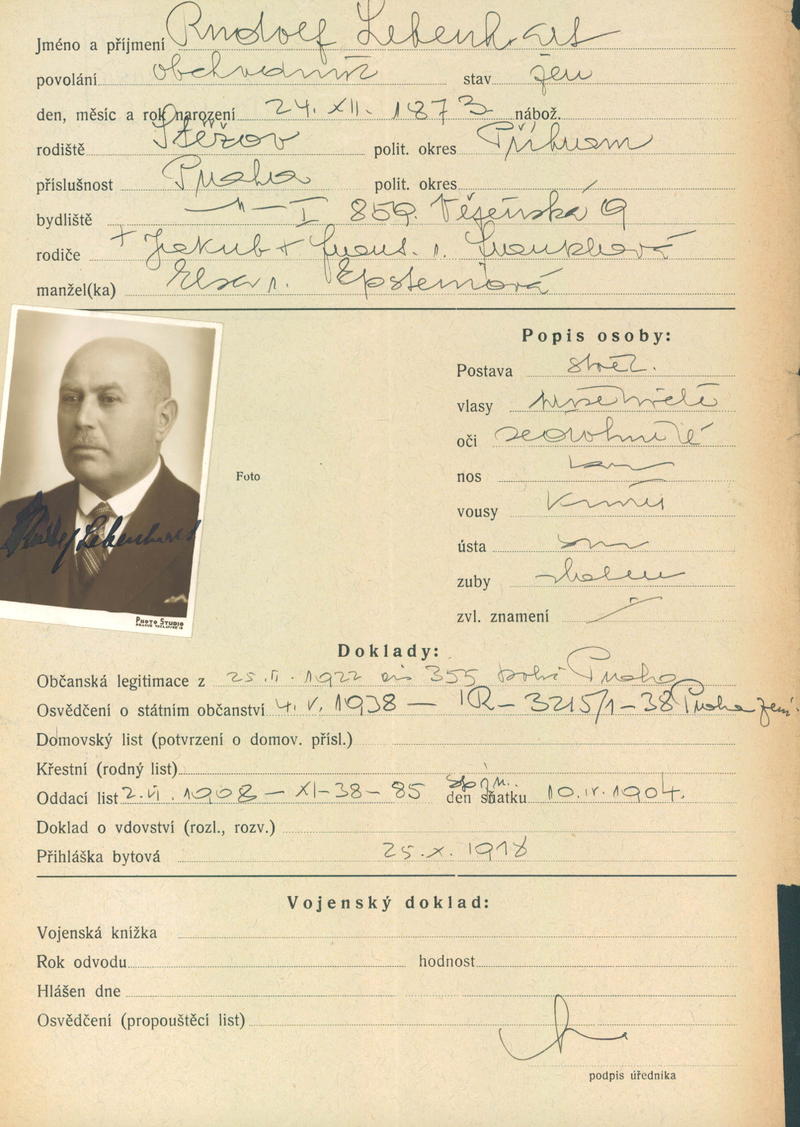 Jméno a příjmení Rudolf Lebenhart
povolání obch vedoucí stav žen
den, měsíc a rok narození 24. XII. 1873 nábož.
rodiště Stěžov polit. okres Příbram
příslušnost Praha polit. okres
bydliště —"— I 859. Vězeňská 9
rodiče + Jakub +
manžel(ka) Elsa r. Epsteinová
Popis osoby:
Postava stř
vlasy
oči
Foto
nos
vousy knír
Rudolf Lebenhart
ústa
zuby
zvl. znamení
PHOTO STUDIO
Doklady:
Občanská legitimace z 25. 1922 čís 355 Praha
Osvědčení o státním občanství 4. V. 1938 — IR — 3215/1-38 Praha zem.
Domovský list (potvrzení o domov. přísl.)
Křestní (rodný list)
Oddací list 2. VI. 1908 — XI-38-85 den sňatku 10. IV. 1904.
Doklad o vdovství (rozl., rozv.)
Přihláška bytová 25. X. 1918
Vojenský doklad:
Vojenská knížka
Rok odvodu hodnost
Hlášen dne
Osvědčení (propouštěcí list)
podpis úředníka